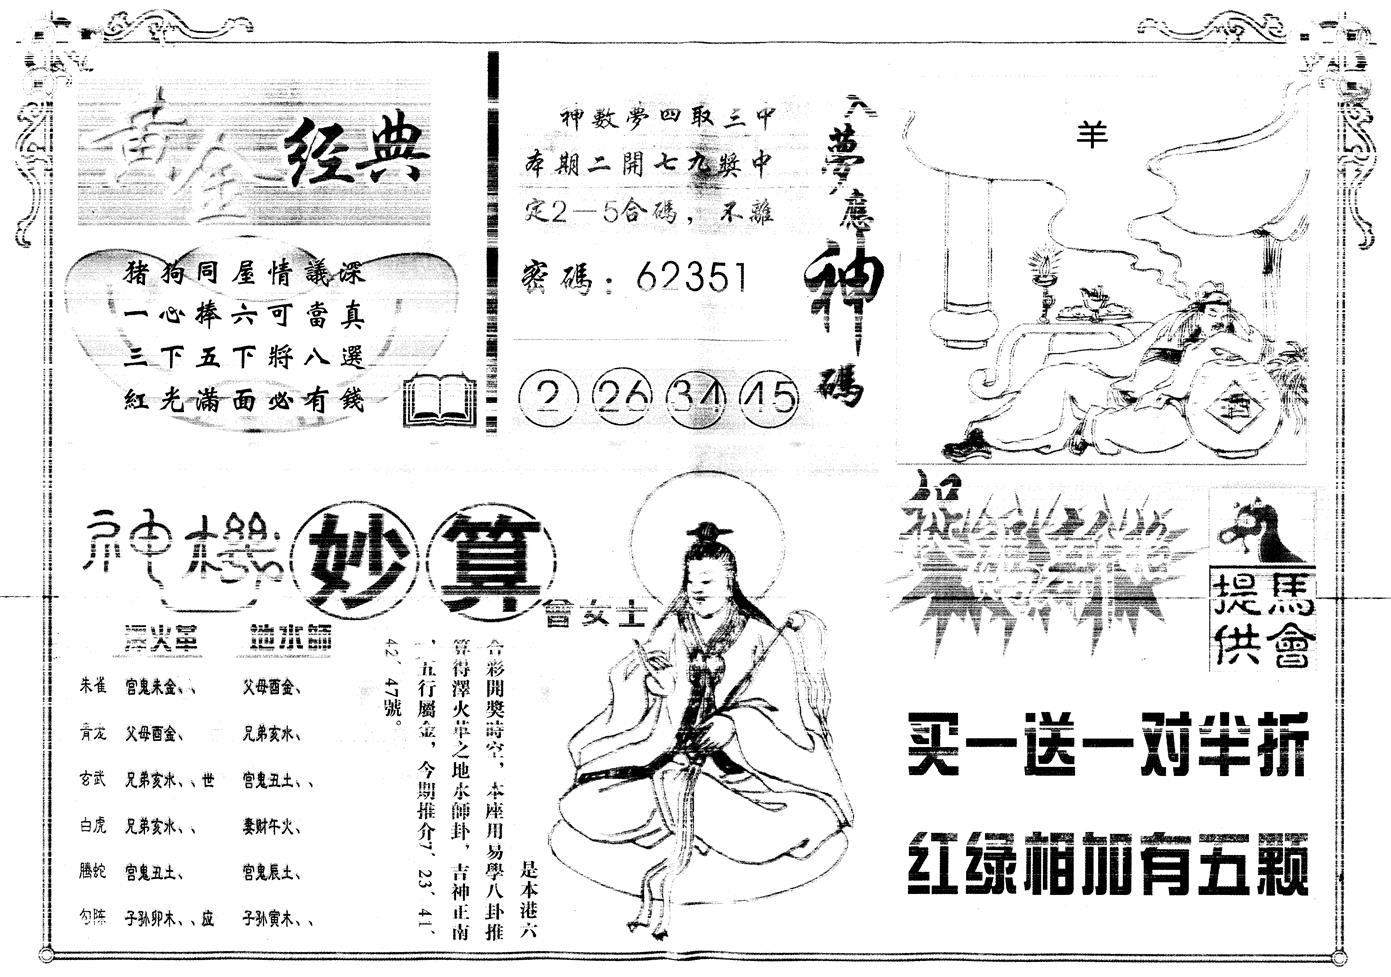 黄金经典
猪狗同屋情議深
一心捧六可當真
三下五下將八選
紅光滿面必有錢
神數夢四取三中
本期二開七九獎中
定2－5合碼，不離
密碼：62351
2 26 34 45
入夢應神碼
羊
神機妙算
曾女士
澤火革 地水師
朱雀 官鬼未金、、 父母酉金、
青龙 父母酉金、 兄弟亥水、
玄武 兄弟亥水、、世 官鬼丑土、、
白虎 兄弟亥水、、 妻财午火、
腾蛇 官鬼丑土、 官鬼辰土、
勾陈 子孙卯木、、应 子孙寅木、、
是本港六
合彩開獎時空，本座用易學八卦推
算得澤火革之地水師卦，吉神正南
，五行屬金，今期推介7、23、41、
42、47號。
提供
馬會
买一送一对半折
红绿相加有五颗